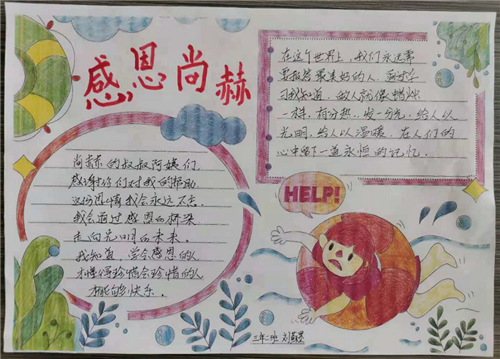 感恩尚赫
在这个世界上，我们永远需
要报答最美好的人，
我知道，做人就像蜡烛
一样，有分热，发一分光，给人以
光明，给人以温暖，在人们的
心中留下一道永恒的记忆。
尚赫的叔叔阿姨们，
感谢你们对我的帮助
这份恩情我会永远不忘。
我会通过感恩的桥梁
走向光明的未来。
我知道，学会感恩的人
才懂得珍惜会珍惜的人
才能够快乐。
HELP!
三年二班